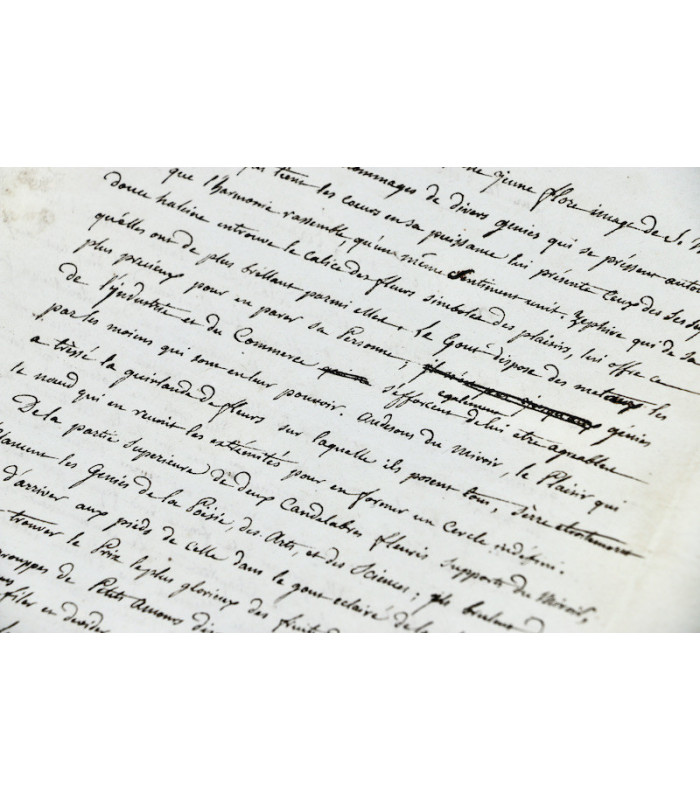 jeune flore image de S. M
tient les cœurs en sa puissance lui présente ceux des
hommages de divers génies qui se pressent autour
que l'harmonie rassemble, qu'un même sentiment unit. Zéphire qui de sa
douce haleine entrouve le calice des fleurs simboles des plaisirs, lui offre ce
qu'elles ont de plus brillant parmi elles. Le Gout dispose des metaux les
plus precieux pour en parer sa Personne, génies
de l'industrie et du Commerce s'efforcent de lui etre agreables
également
par les moiens qui sont en leur pouvoir. Audessus du miroir, le Plaisir qui
a tressé la guirlande de fleurs sur laquelle ils posent tous, serre
le nœud qui en reunit les extrémités pour en former un Cercle indéfini.
De la partie Superieure de deux Candelabres fleuris supports du Miroir,
les Genies de la Poësie, des Arts, et des Sciences; ils brulent
d'arriver aux pieds de celle dans le gout eclairé de
trouver le Prix le plus glorieux des fruits
grouppes de Petits Amours
filer en